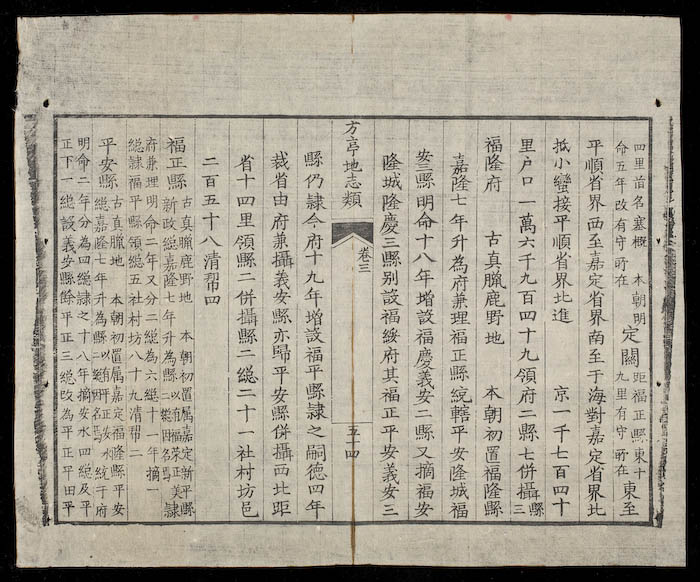 四里首名塞概 本朝明
命五年改有守所在
定關
距福正縣東十
九里有守所在
東至
平順省界西至嘉定省界南至于海對嘉定省界北
抵小蠻接平順省界北進 京一千七百四十
里户口一萬六千九百四十九領府二縣七併攝縣三
福隆府 古真臘鹿野地 本朝初置福隆縣
嘉隆七年升為府兼理福正縣統轄平安隆城福
安三縣明命十八年增設福慶義安二縣又摘福安
隆城隆慶三縣别設福綏府其福正平安義安三
方亭地志類 卷三 五十四
縣仍隸今府十九年增設福平縣隸之嗣德四年
裁省由府兼攝義安縣亦歸平安縣併攝西北距
省十四里領縣二併攝縣二總二十一社村坊邑
二百五十八清帮四
福正縣
古真臘鹿野地 本朝初置属嘉定新平縣
新政總嘉隆七年升為縣以福榮正美隸
府兼理明命二年又分二總為六總十一年摘一
總隸福平縣領總五社村坊八十九清帮二
平安縣
古真臘地 本朝初置属嘉定福隆縣平安
總嘉隆七年升為縣以平正安水統于府
明命二年分為四總隸之十八年摘安水四總及平
正下一總設義安縣餘平正三總改為平正平田平